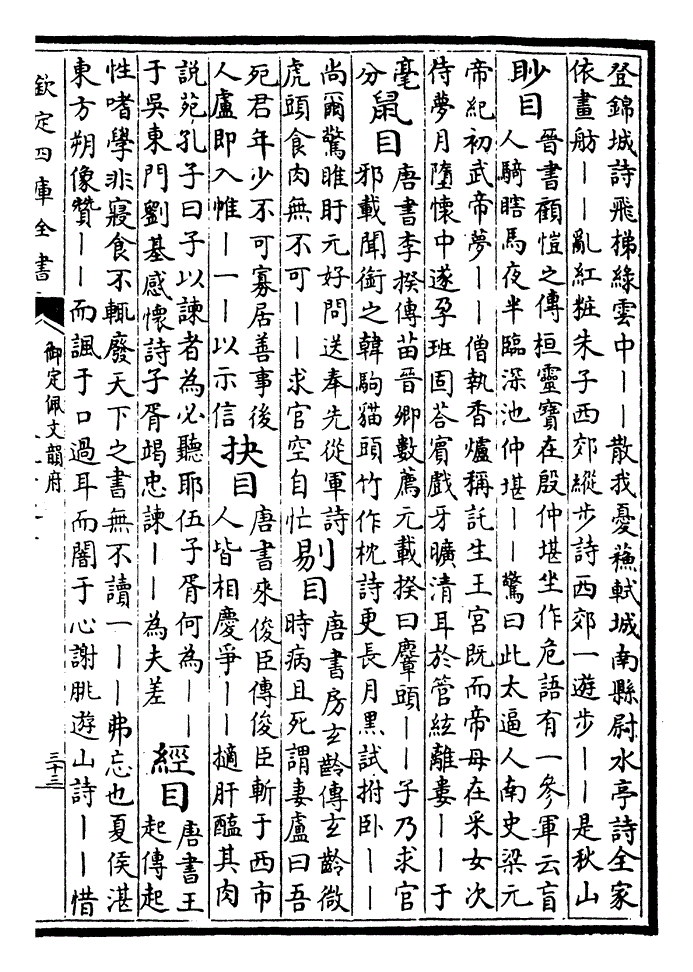 登錦城詩飛梯緑雲中丨丨散我憂蘓軾城南縣尉水亭詩全家
依畫舫丨丨亂紅粧朱子西郊縱步詩西郊一遊步丨丨是秋山
眇目
晉書顧愷之傳桓靈寶在殷仲堪坐作危語有一參軍云盲
人騎瞎馬夜半臨深池仲堪丨丨驚曰此太逼人南史梁元
帝紀初武帝夢丨丨僧執香爐稱託生王宮既而帝母在采女次
侍夢月墮懷中遂孕班固荅賓戲牙曠清耳於管絃離婁丨丨于
毫
分
鼠目
唐書李揆傳苗晉卿數薦元載揆曰麞頭丨丨子乃求官
邪載聞銜之韓駒貓頭竹作枕詩更長月黑試拊卧丨丨
尚爾驚睢盱元好問送奉先從軍詩
虎頭食肉無不可丨丨求官空自忙
剔目
唐書房玄齡傳玄齡微
時病且死謂妻盧曰吾
死君年少不可寡居善事後
人盧即入帷丨一丨以示信
抉目
唐書來俊臣傳俊臣斬于西市
人皆相慶爭丨丨擿肝醢其肉
説苑孔子曰子以諫者為必聽耶伍子胥何為丨丨
于吳東門劉基感懷詩子胥竭忠諫丨丨為夫差
經目
唐書王
起傳起
性嗜學非寢食不輒廢天下之書無不讀一丨丨弗忘也夏侯湛
東方朔像贊丨丨而諷于口過耳而闇于心謝朓遊山詩丨丨惜
欽定四庫全書
御定佩文韻府
三十三